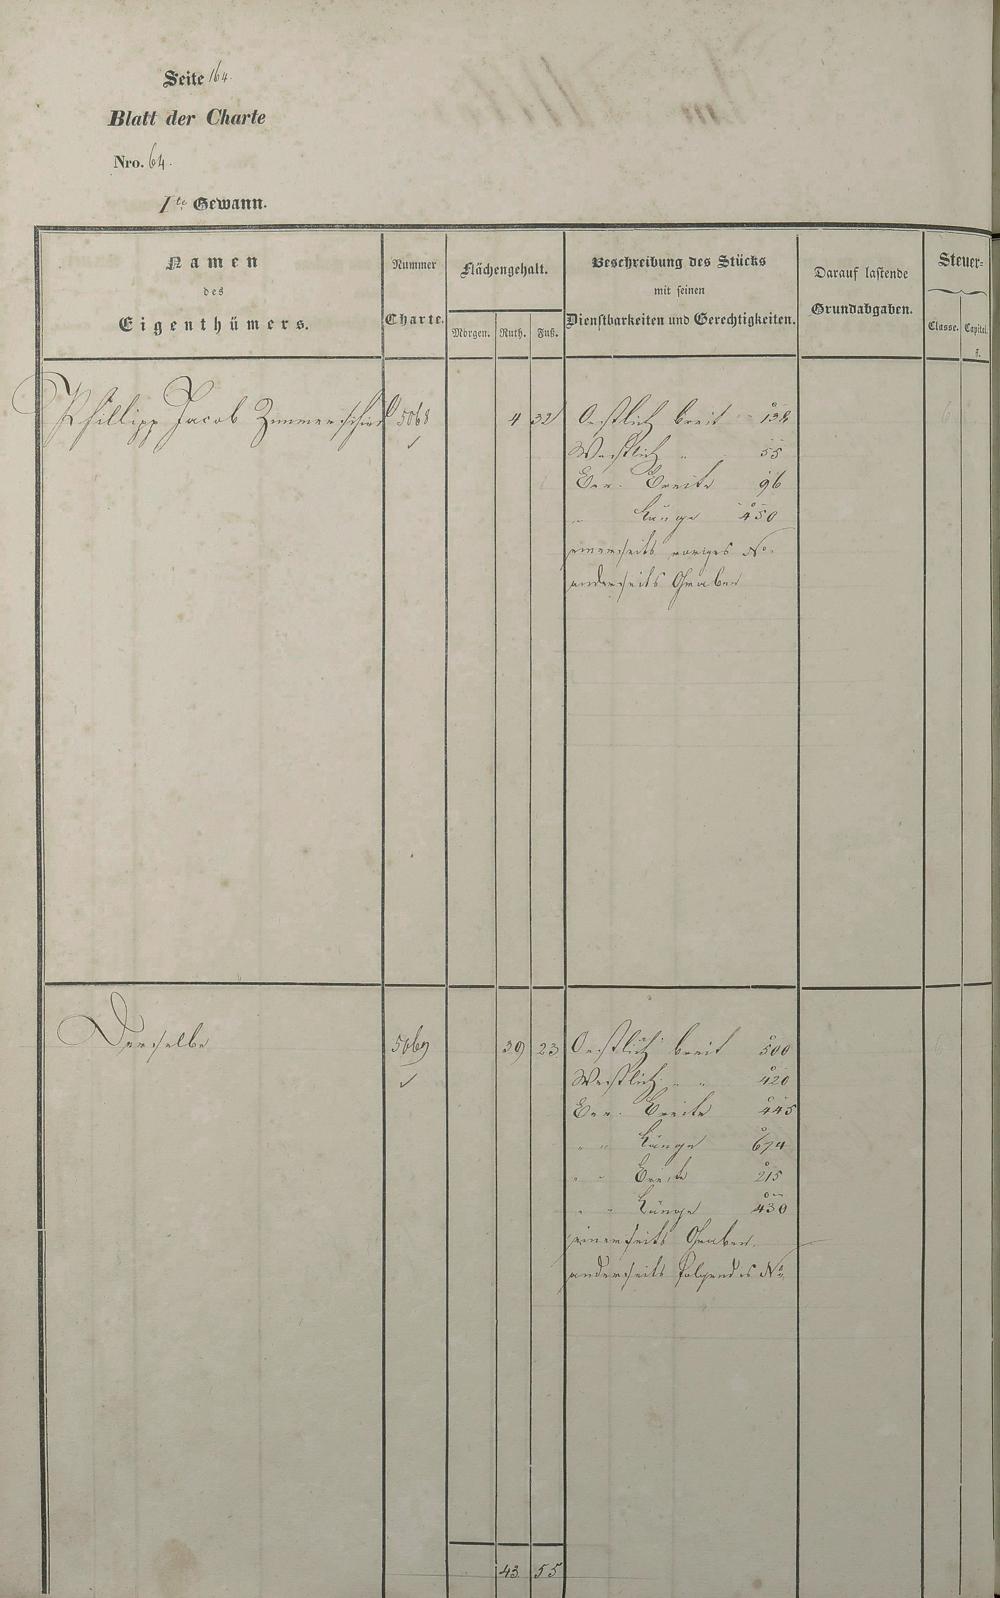 Seite 164.
Blatt der Charte
Nro. 64.
1te Gewann.
Namen
des
Eigenthümers.
Nummer
Charte.
Flächengehalt.
Morgen. Ruth. Fuß.
Beschreibung des Stücks
mit seinen
Dienstbarkeiten und Gerechtigkeiten.
Darauf lastende
Grundabgaben.
Steuer-
Classe. Capital.
f.
Phillipp Jacob Zimmerschied 5068 4 32 Oestlich breit 138
Westlich " 55
Ber. Breite 96
" Länge 450
einerseits voriges No.
anderseits Graben
Derselbe 5069 39 23 Oestlich breit 500
Westlich " " 420
Ber. Breite 445
" " Länge 674
" " Breite 215
" " Länge 430
einerseits Graben.
anderseits folgendes No.
43 55